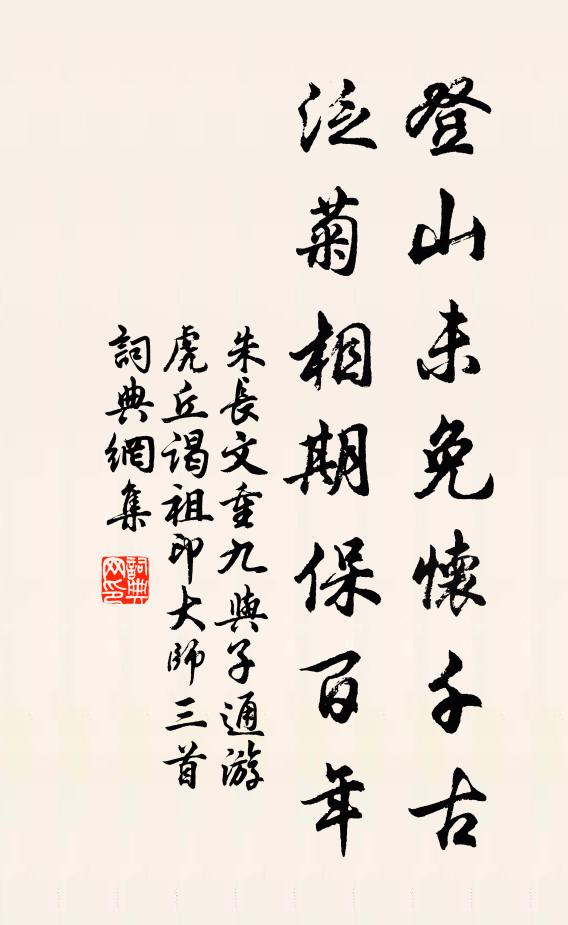 登山未免懷千古
泛菊相期保百年
朱長文重九與子通游
虎丘謁祖印大師三首
詞典網集
詞典
网印